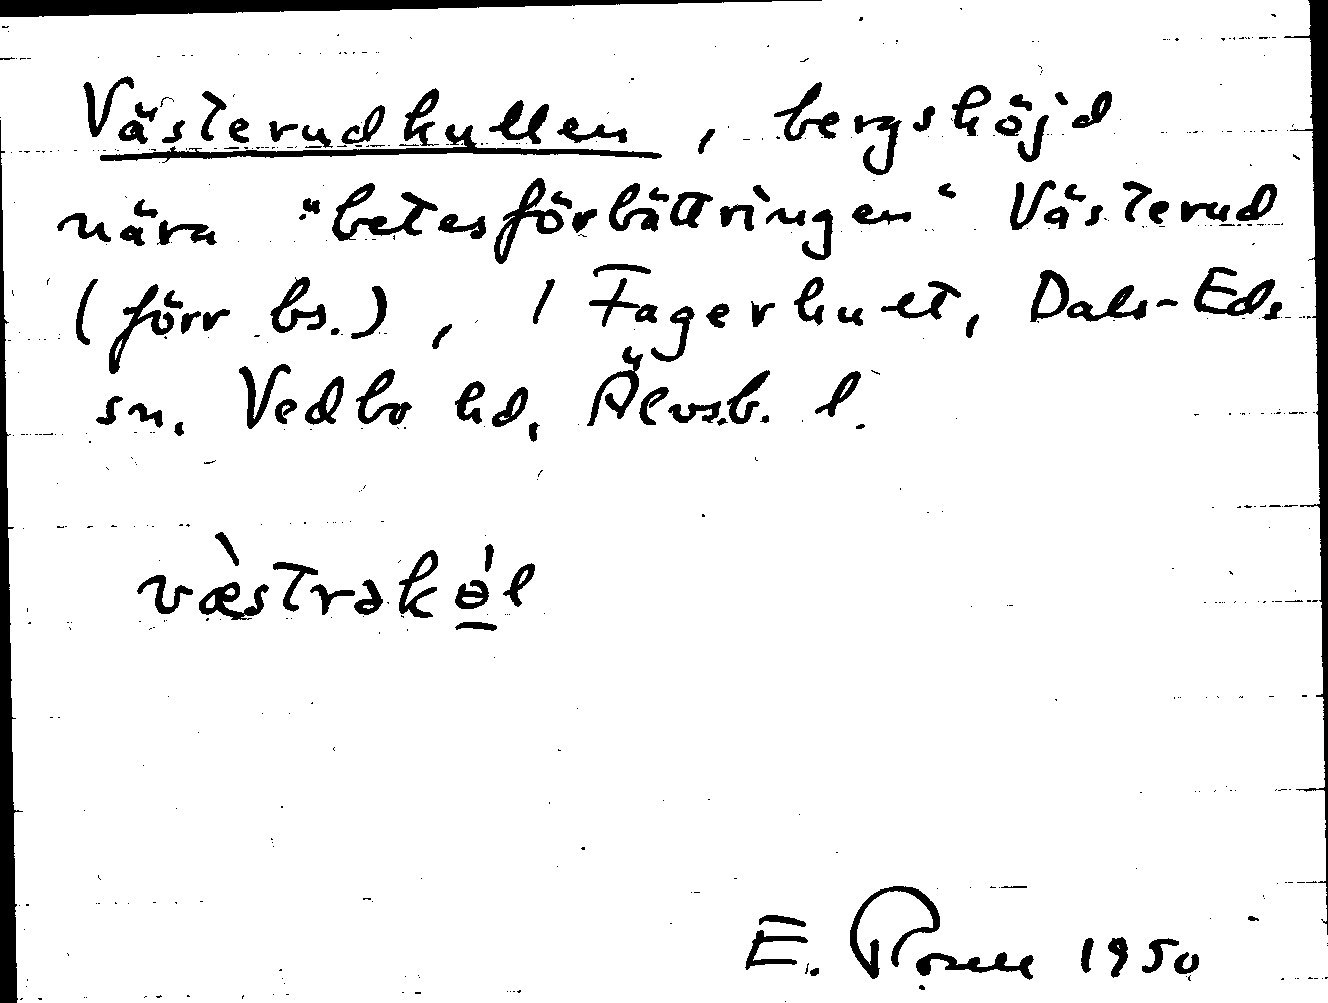 Västerudkullen, bergshöjd
nära "betesförbättringen" Västerud
(förr bs.), 1 Fagerhult, Dals-Eds
sn. Vedbo hd, Älvsb. l.
væ̀strəkɵ̠́l
E. 1950